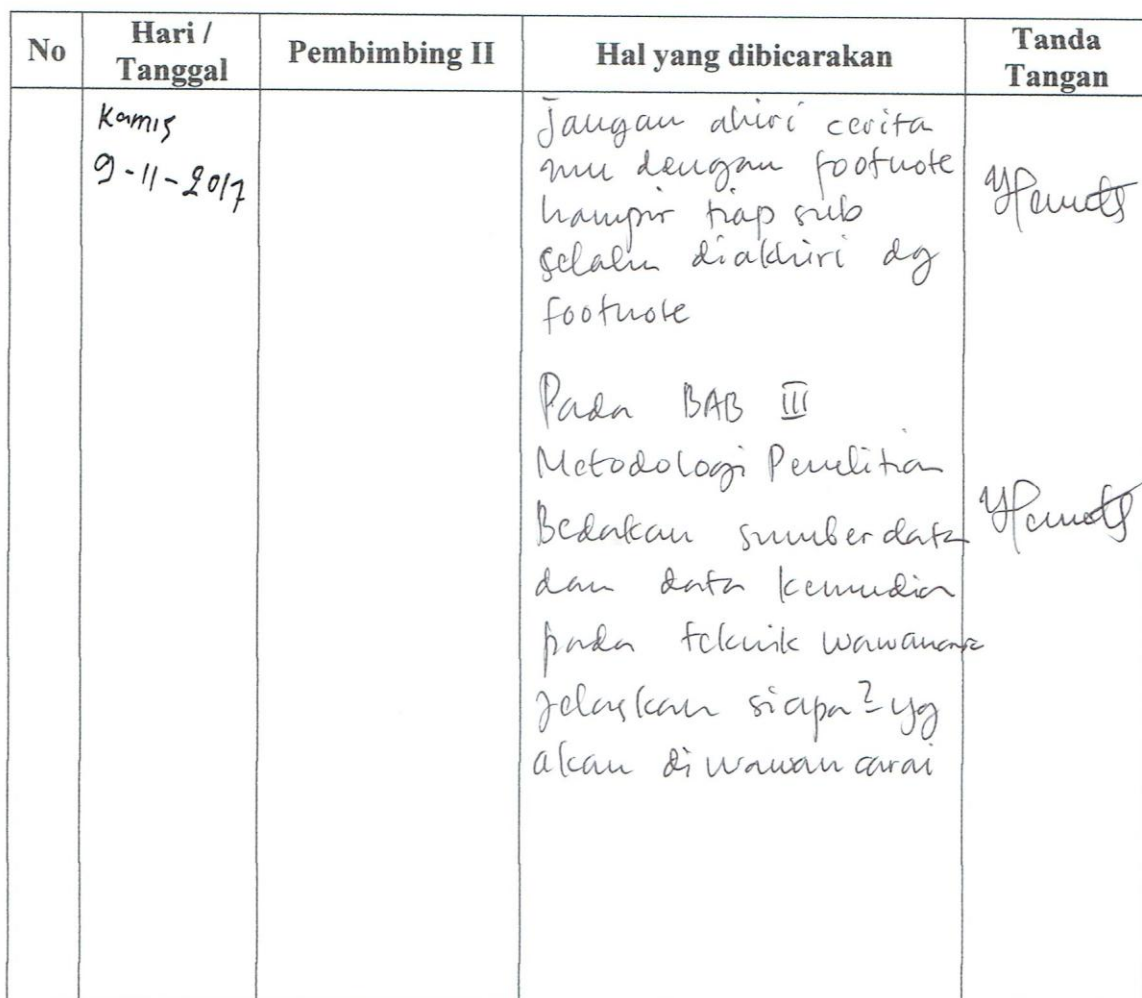 No
Hari /
Tanggal
Pembimbing II
Hal yang dibicarakan
Tanda
Tangan
Kamis
9-11-2017
Jangan ahiri cerita
mu dengan footnote
hampir tiap sub
selalu diakhiri dg
footnote
Pada BAB III
Metodologi Penelitian
Bedakan sumber data
dan data kemudian
pada teknik wawancara
jelaskan siapa2 yg
akan diwawancarai